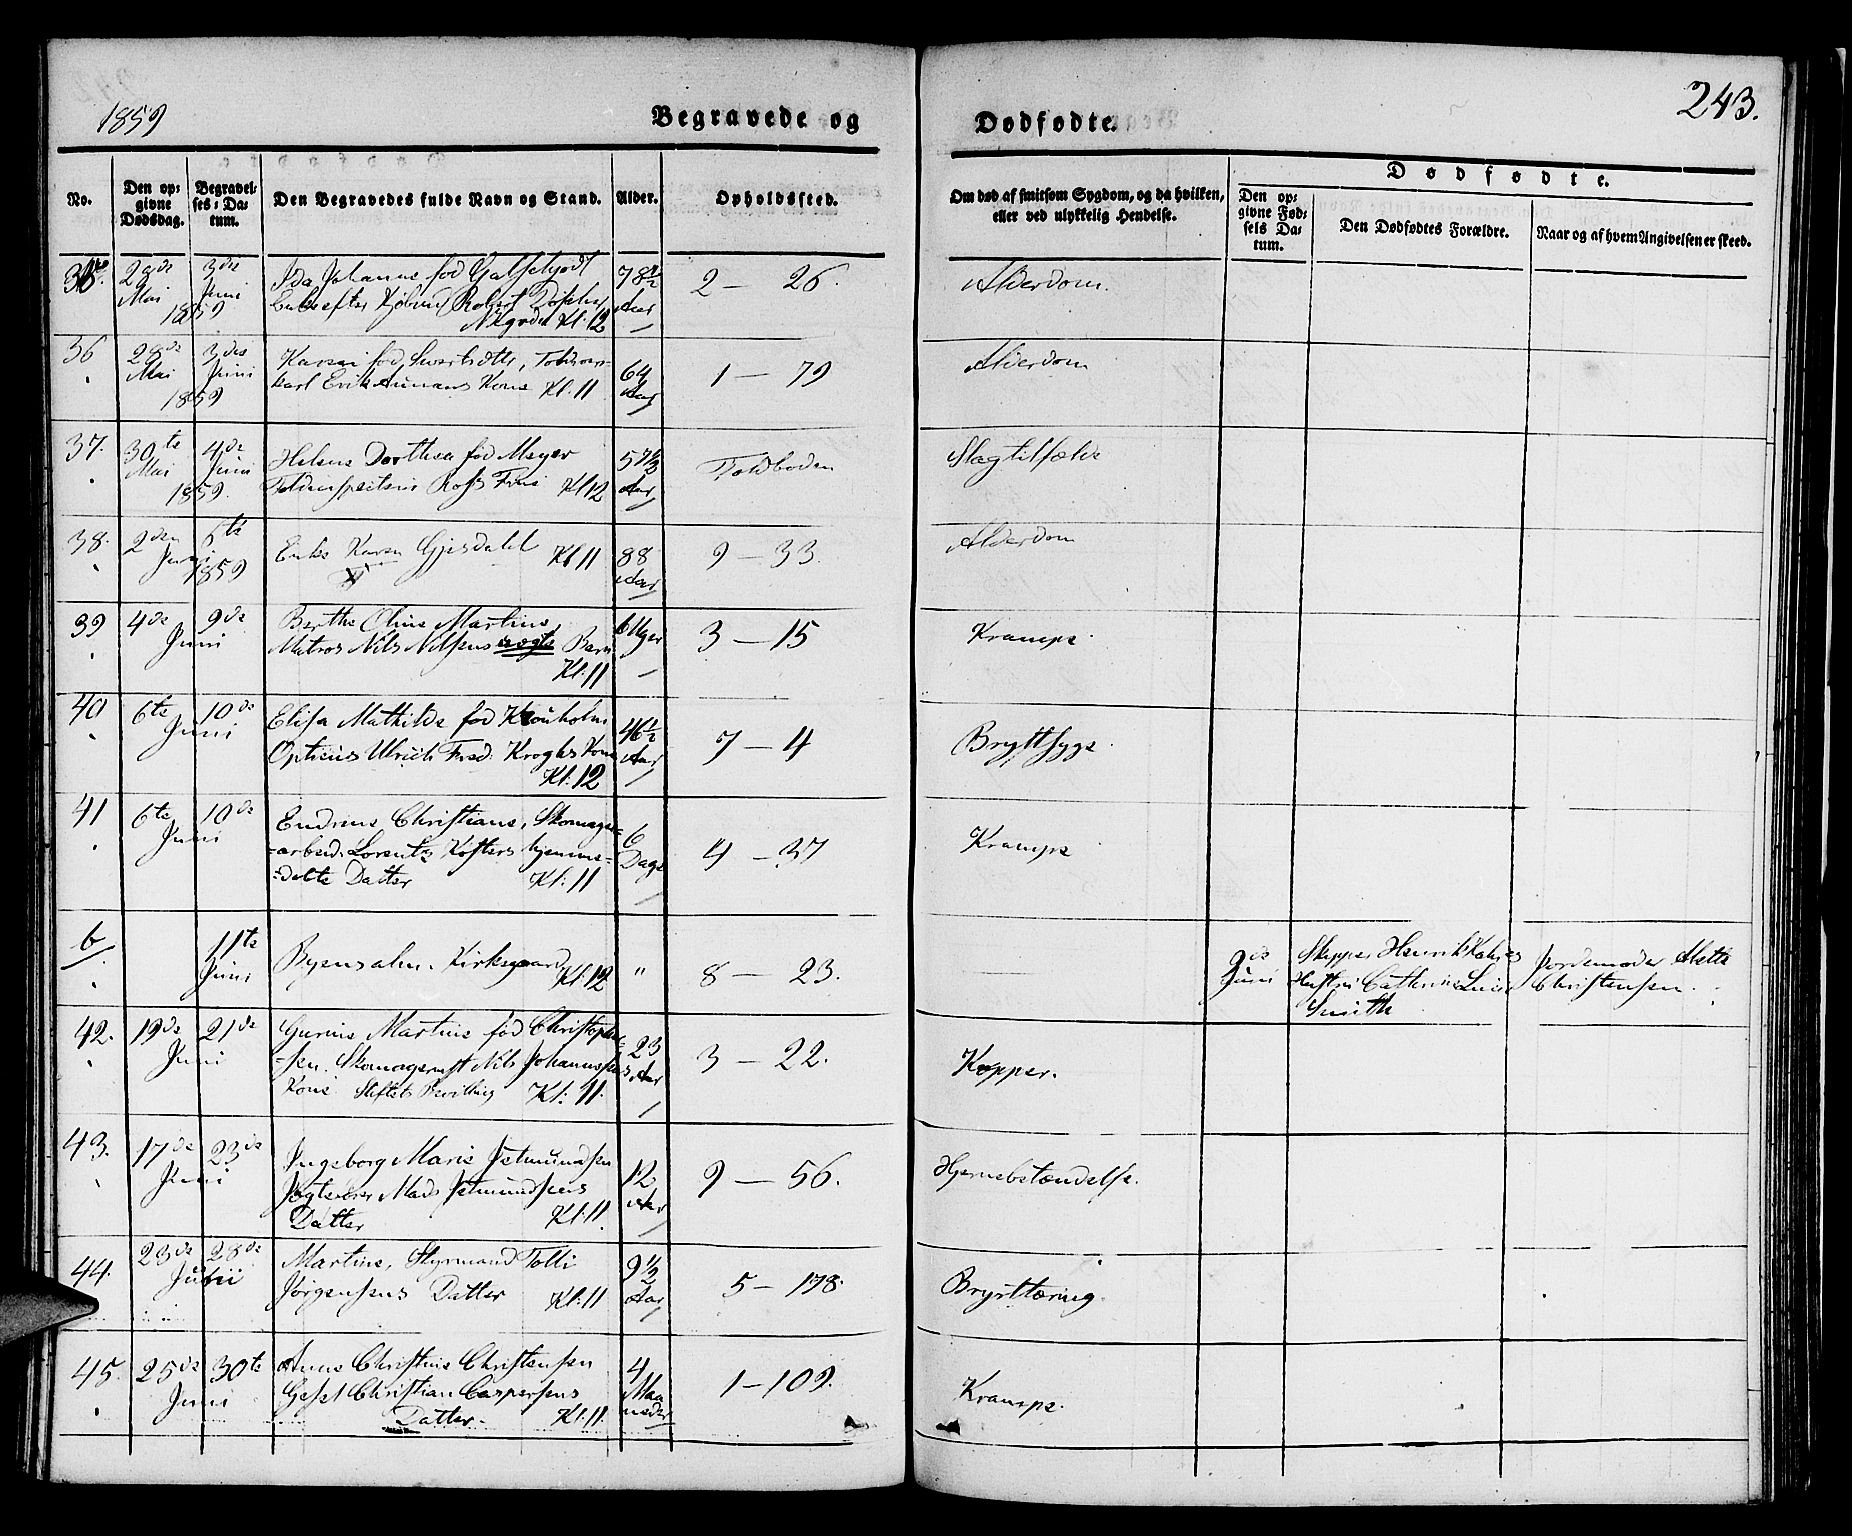 1859
Begravede og
Dødfødte.
243.
No.
Den op-
givne
Dødsdag.
Begravel-
ses-Da-
tum.
Den Begravedes fulde Navn og Stand.
Alder.
Opholdssted.
Om død af smitsom Sygdom, og da hvilken,
eller ved ulykkelig Hendelse.
Dødfødte.
Den op-
givne Fød-
sels Da-
tum.
Den Dødfødtes Forældre.
Naar og af hvem Angivelsen er skeed.
28de Mai 3die Juni 1859
Ida Johanne fød
Enke efter Robert
Kl: 12
78½ Aar
2 — 26.
Alderdom.
36
28de Mai 3die Juni 1859
Karen fød
karl Erik Kone Kl: 11
64 Aar
1 — 79
Alderdom
37.
30te Mai 4de Juni 1859.
Helene Dorthea fød Meyer
Ross Frue Kl 12
57½ Aar
Toldboden
Slagtilfælde
38.
2den Juni 6te 1859
Enke Karen Gjesdahl Kl 11
88 Aar
9 — 33.
Alderdom
39
4de 9de Juni
Berthe Oline Martine
Matros Nils Nilsens uægte Barn
Kl: 11
6 Uger
3 — 15
Krampe.
40
6te 10de Juni
Elisa Mathilde fød Kronholm
Opticus Ulrich Fred: Kroghs Kone
Kl: 12
46½ Aar
7 — 4
Brystsyge.
41
6te 10de Juni
Endrine Christiane, Skomager-
-arbeid. Lorentz Køsters hjemme-
-døbte Datter Kl: 11
6 Dage
4 — 37
Krampe
6
11te Juni
Byens alm. Kirkegaard Kl: 12
"
8 — 23.
9de Juni
Skipper Henrik
Hustru Cathrine Lucie
Smith
Jordemoder Mette
Christensen.
42.
19de 21de Juni
Gurine Martine fød Christophe-
-sen. Skomagermst Nils Johannesens
Kone Kl: 11.
23 Aar
3 — 22.
Kopper.
43.
17de 23de Juni
Ingeborg Marie Jetmundsen
Mads Jetmundsens
Datter Kl: 11.
12 Aar
9 — 56.
Hjernebetændelse.
44.
23de 28de Juni
Martine, Styrmand Tolli
Jørgensens Datter Kl: 11
9½ Aar
5 — 178.
Brysttæring.
45.
25de 30te Juni
Anne Christine Christensen
Christian Caspersens
Datter. Kl: 11.
4 Maaneder
1 — 109.
Krampe.